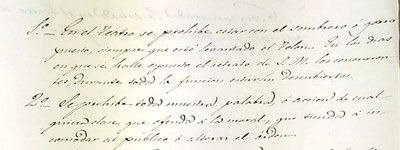 1º- En el Teatro se prohibe estar con el sombrero ó gorra
puesto, siempre que esté levantado el Telon. En los dias
en que se halle espuesto el retrato de S. M. los concurren-
tes, durante toda la funcion estarán descubiertos.
2º- Se prohibe toda muestra, palabra, ó accion de cual-
quiera clase que ofenda á la moral, que tienda á in-
comodar al público ó alterar el órden.